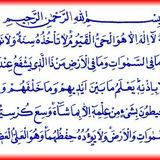 بِسْمِ اللَّهِ الرَّحْمَنِ الرَّحِيمِ
لَا إِلَهَ إِلَّا هُوَ الْحَيُّ الْقَيُّومُ لَا تَأْخُذُهُ سِنَةٌ وَلَا
مَا فِي السَّمَوَاتِ وَمَا فِي الْأَرْضِ مَنْ ذَا الَّذِي يَشْفَعُ
بِإِذْنِهِ يَعْلَمُ مَا بَيْنَ أَيْدِيهِمْ وَمَا خَلْفَهُمْ
يُحِيطُونَ بِشَيْءٍ مِنْ عِلْمِهِ إِلَّا بِمَا شَاءَ وَسِعَ
السَّمَوَاتِ وَالْأَرْضَ وَلَا يَؤُدُهُ حِفْظُهُمَا وَهُوَ الْعَلِيُّ